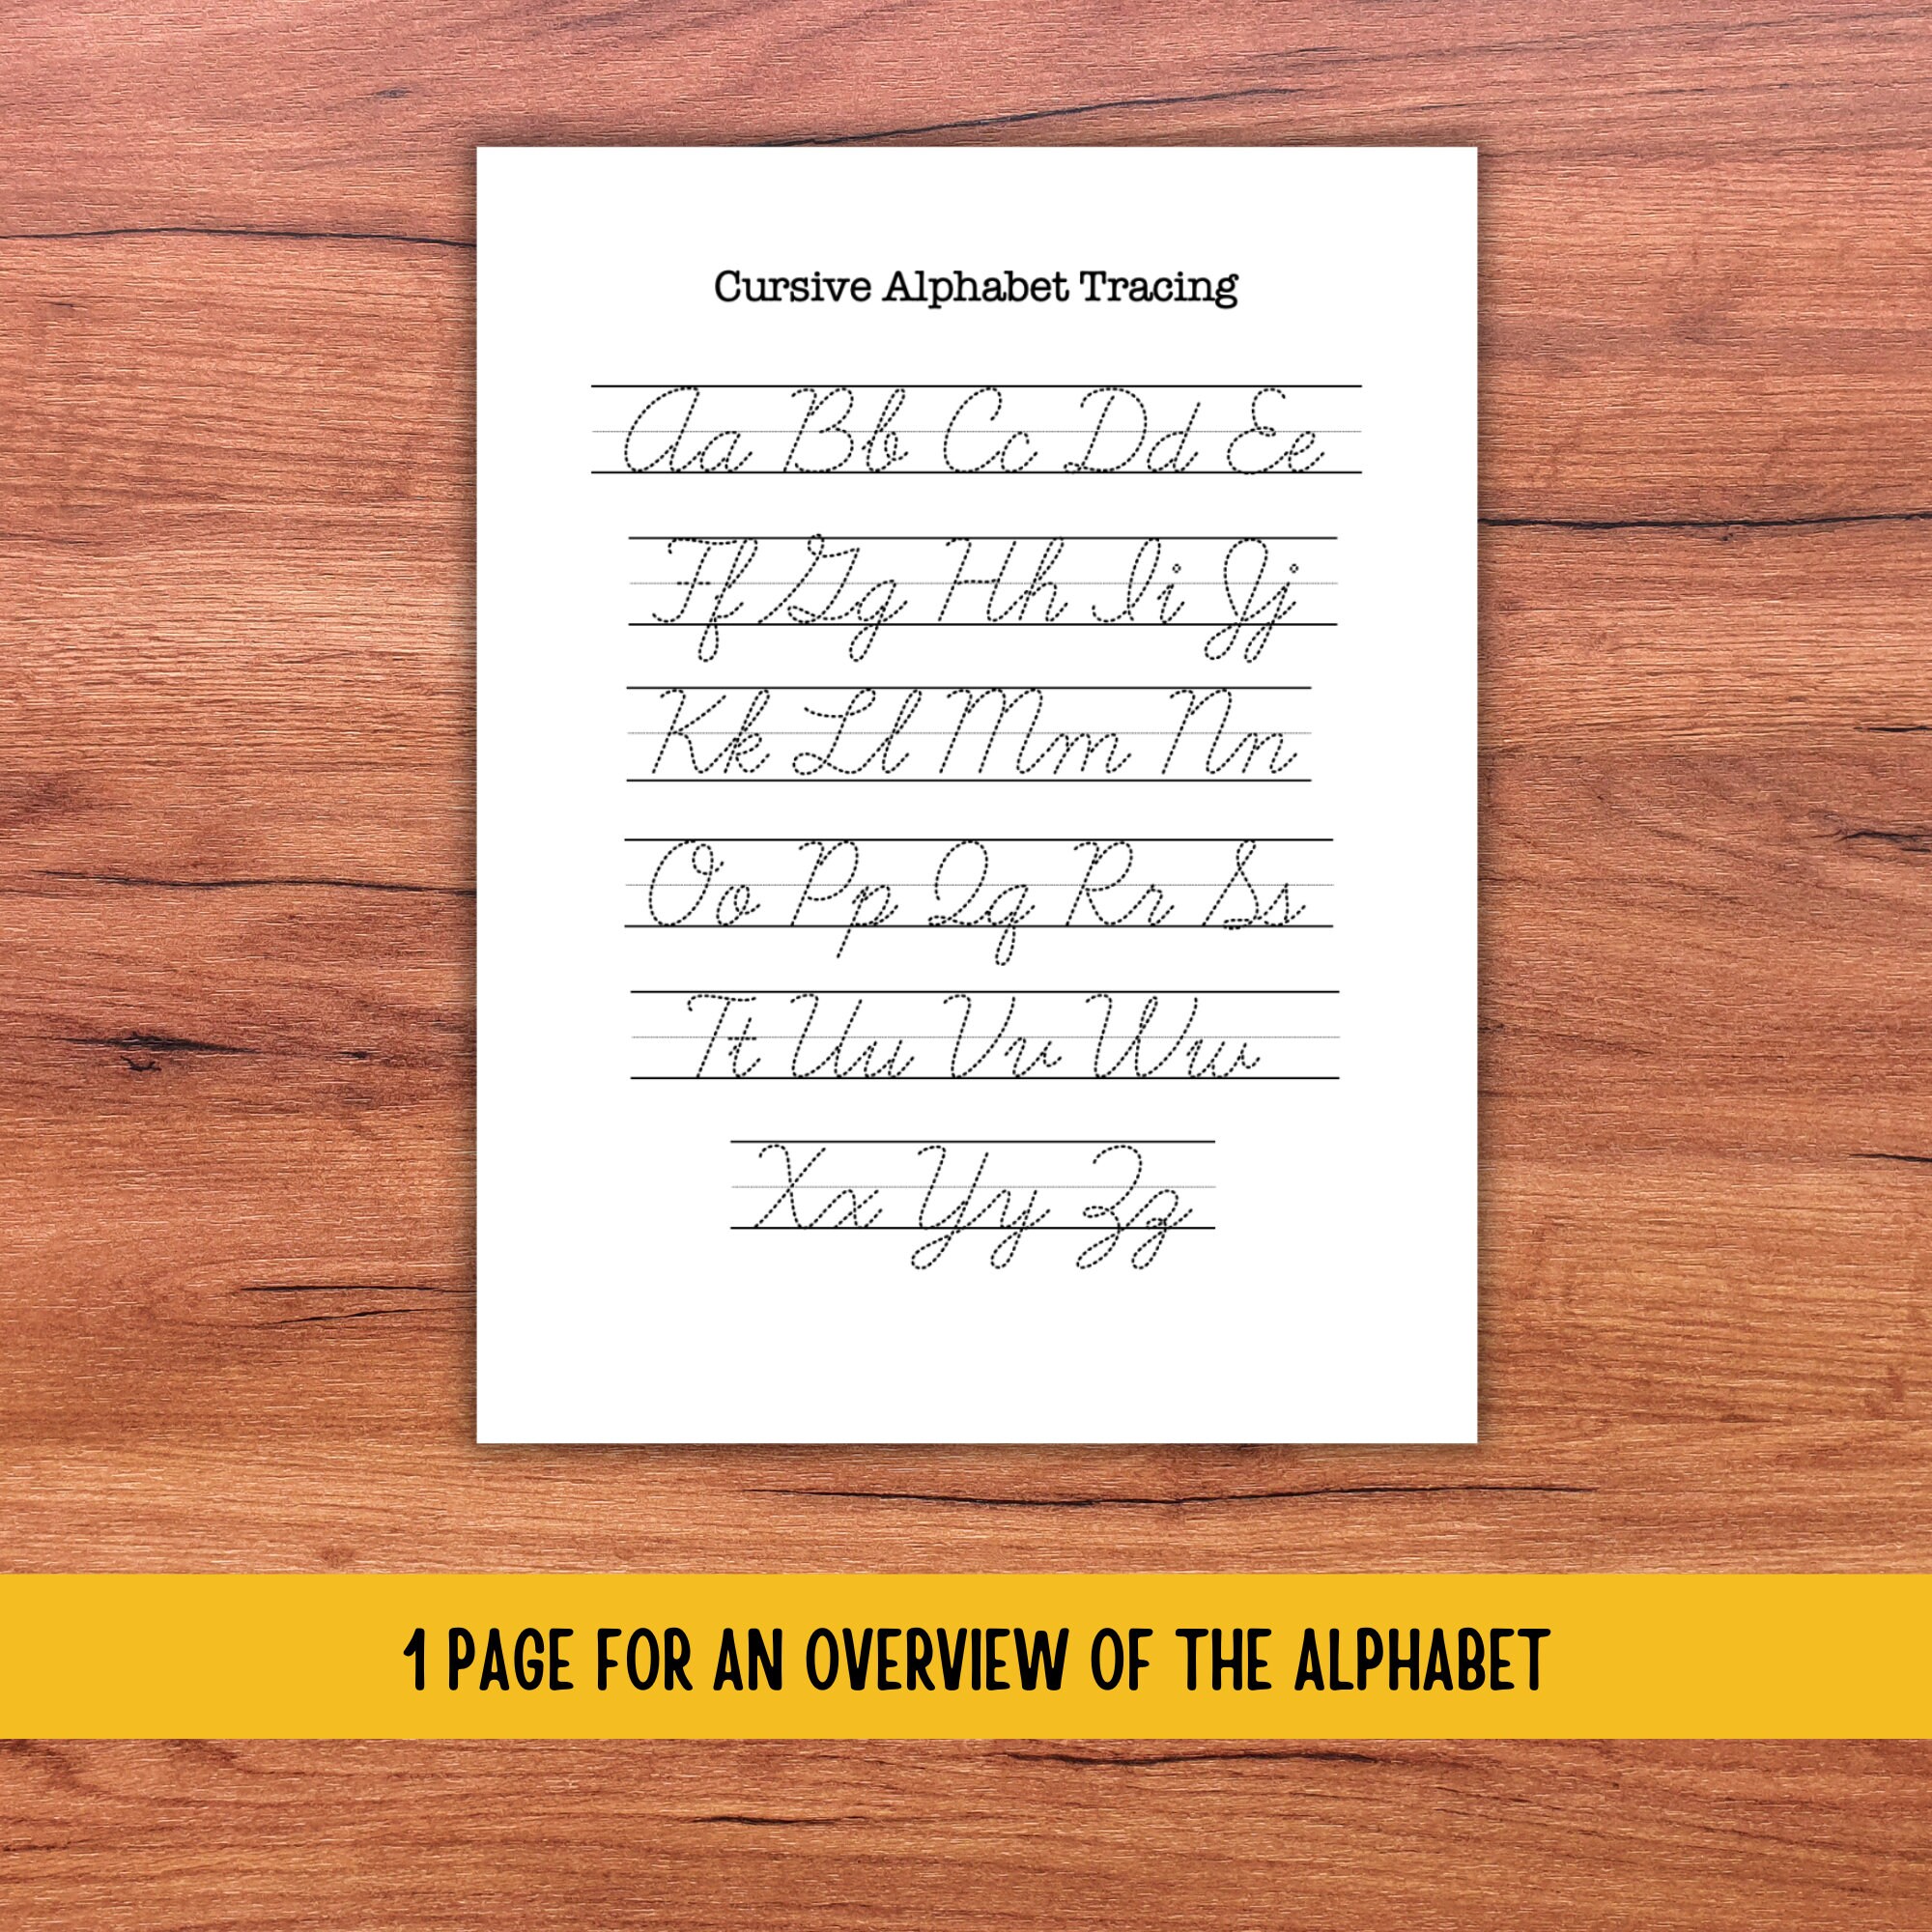 Cursive Alphabet Tracing
Aa Bb Cc Dd Ee
Ff Gg Hh Ii Jj
Kk Ll Mm Nn
Oo Pp Qq Rr Ss
Tt Uu Vv Ww
Xx Yy Zz
1 PAGE FOR AN OVERVIEW OF THE ALPHABET